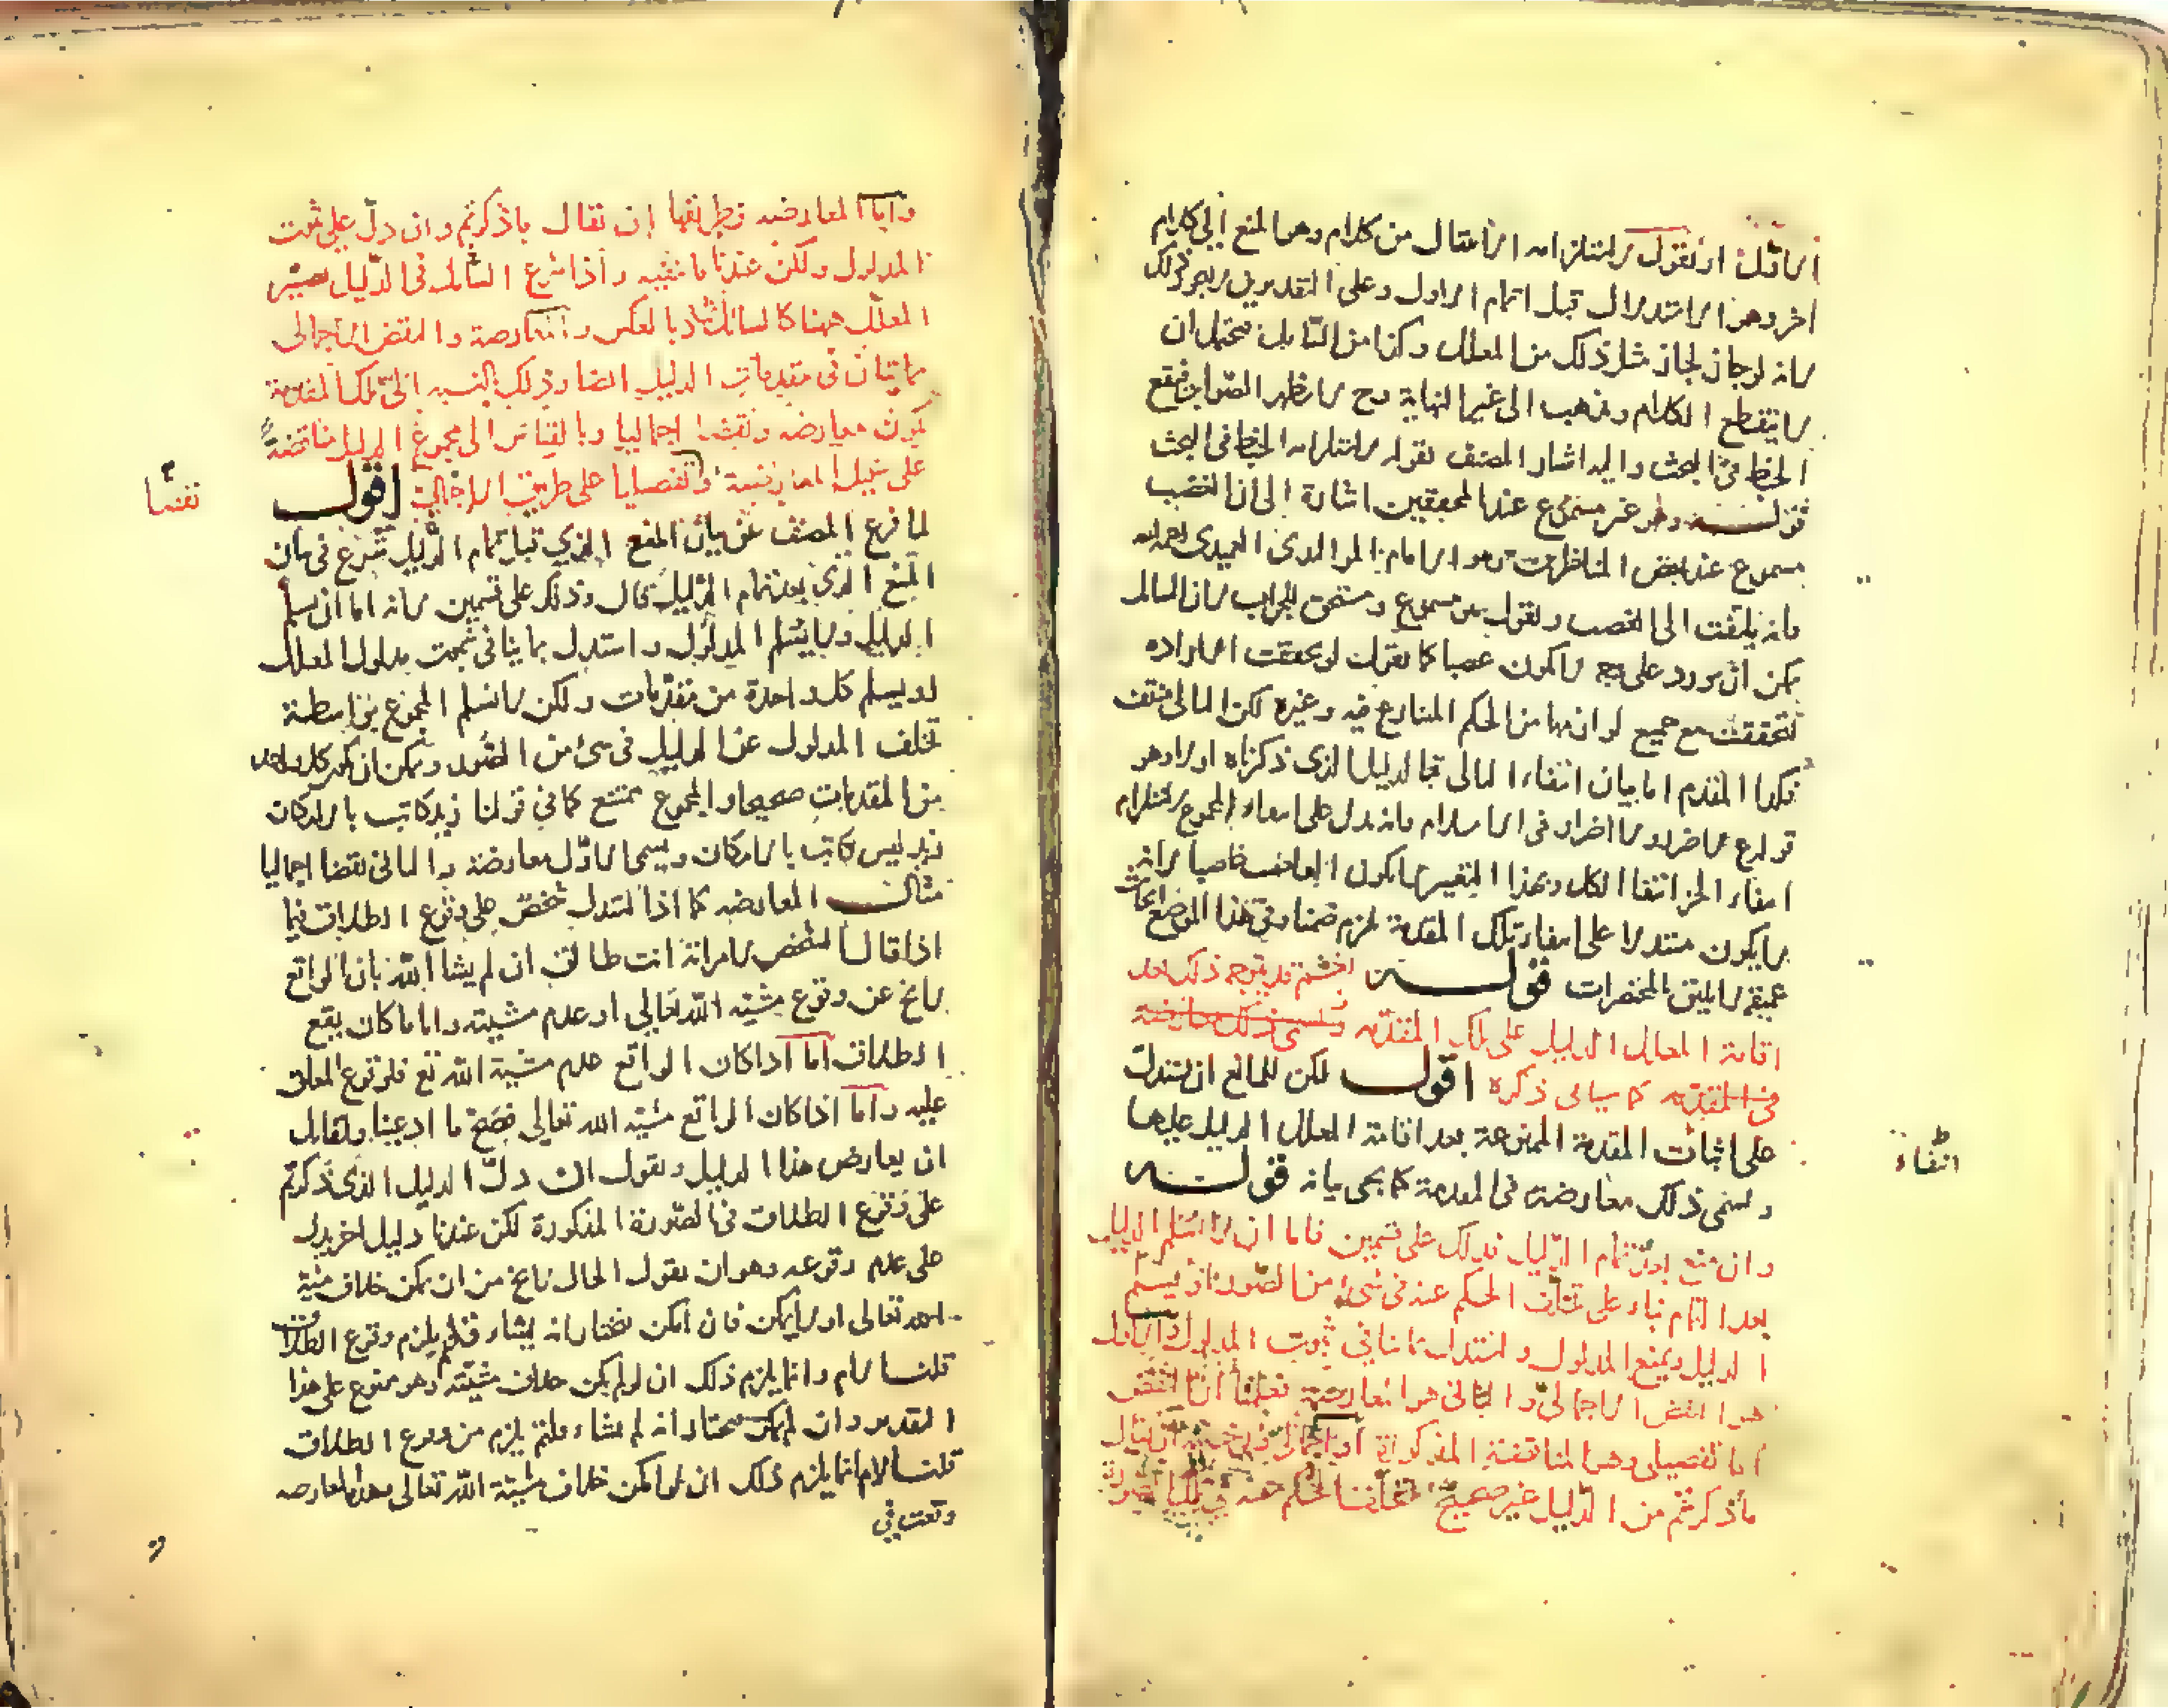 الاول او نقول لاستلزامه الانتقال من كلام وهو المنع الى كلام
اخر وهو الاستدلال قبل اتمام الاول وعلى التقديرين لا يجوز ذلك
لانه لو جاز لجاز مثل ذلك من المعلل وكذا من السايل فيحتمل ان
لا ينقطع الكلام ويذهب الى غير النهاية وح لا يظهر الصواب فيقع
الخبط في البحث واليه اشار المصنف بقوله لاستلزامه الخبط في البحث
قولـــه وهو غير مسموع عند المحققين اشارة الى ان الغصب
مسموع عند بعض المناظرين وهو الامام العميدى رحمه الله
فانه يلتفت الى الغصب ويقول مسموع ومستحق للجواب لان السايل
يمكن ان يورد على وجه لا يكون غصبا كما نقول لو تحققت الارادة
لتحققت مع جميع لوازمها من الحكم المتنازع فيه وغيره لكن التالى منتف
فكذا المقدم اما بيان انتفاء التالى فبالدليل الذى ذكرناه اولا وهو
قوله ع م لا ضرر ولا اضرار فى الاسلام فانه يدل على انتفاء المجموع لاستلزام
انتفاء الجزء انتفاء الكل وبهذا التغيير لا يكون المانع غاصبا لانه
لا يكون مستدلا على انتفاء تلك المقدمة بل يلزم ضمنا وفى هذا الموضع ابحاث
عميقة لا يليق بالمختصرات قولـــه ثم قد يتوجه ذلك بعد
اقامة المعلل الدليل على تلك المقدمة ويسمى ذلك معارضة
فى المقدمة كما سياتى ذكره اقول لكن للمانع ان يستدل
على انتفاء المقدمة الممنوعة بعد اقامة المعلل الدليل عليها
ويسمى ذلك معارضة فى المقدمة كما يجى بيانه قولـــه
وان منع بعد تمام الدليل فذلك على قسمين فاما ان لا يسلم الدليل
بعد التمام بناء على تخلف الحكم عنه فى شىء من الصور او يسلم
الدليل ويمنع المدلول واستدل بما ينافي ثبوت المدلول والاول
هو النقض الاجمالى والثانى هو المعارضة فعلمنا ان النقض
اما تفصيلى وهو المناقضة المذكورة او اجمالى ان يقال
ما ذكرتم من الدليل غير صحيح لتخلف الحكم عنه فى تلك الصورة
انتفاء
واما المعارضة فطريقها ان يقال ما ذكرتم وان دل على ثبوت
المدلول ولكن عندنا ما ينفيه واذا شرع السائل فى الدليل يصير
المعلل ههنا كالسائل ثمة وبالعكس والمعارضة والنقض الاجمالى
ياتيان فى مقدمات الدليل ايضا وذلك بالنسبة الى تلك المقدمة
يكون معارضة ونقضا اجماليا وبالقياس الى مجموع الدليل مناقضة
على سبيل المعارضة او تفصيليا على طريق الاجمالى اقول
نقضا
لما فرغ المصنف عن بيان المنع الذى قبل تمام الدليل شرع فى بيان
المنع الذى بعد تمام الدليل فقال وذلك على قسمين لانه اما ان يسلم
الدليل ولا يسلم المدلول واستدل بما ينافى ثبوت مدلول المعلل
او يسلم كل واحدة من مقدمات ولكن لا يسلم المجموع بواسطة
تخلف المدلول عن الدليل فى شىء من الصور ويمكن ان يكون كل واحد
من المقدمات صحيحا والمجموع ممتنع كما فى قولنا زيد كاتب بالامكان
زيد ليس كاتب بالامكان ويسمى الاول معارضة والثانى نقضا اجماليا
مثالـــ المعارضة كما اذا استدل شخص على وقوع الطلاق فيما
اذا قال الشخص لامراته انت طالق ان لم يشا الله بان الواقع
لا يخ عن وقوع مشية الله تعالى او عدم مشيته واياما كان يقع
الطلاق اما اذا كان الواقع عدم مشية الله تع فلوقوع المعلق
عليه واما اذا كان الواقع مشية الله تعالى فصح ما ادعينا ولقايل
ان يعارض هذا الدليل ويقول ان دل الدليل الذى ذكرتم
على وقوع الطلاق فى الصورة المذكورة لكن عندنا دليل اخر يدل
على عدم وقوعه وهو ان نقول الحال لا يخ من ان يمكن خلاف مشية
الله تعالى او لا يمكن فان امكن نختار انه يشاء فلم يلزم وقوع الطلاق
قلنا لا م وانما يلزم ذلك ان لو لم يكن خلاف مشيته وهو ممنوع على هذا
التقدير وان لم يمكن نختار انه لم يشاء فلم يلزم من وقوع الطلاق
قلنا لا م انما يلزم ذلك ان لو امكن خلاف مشية الله تعالى وهذه المعارضه
وقعت في